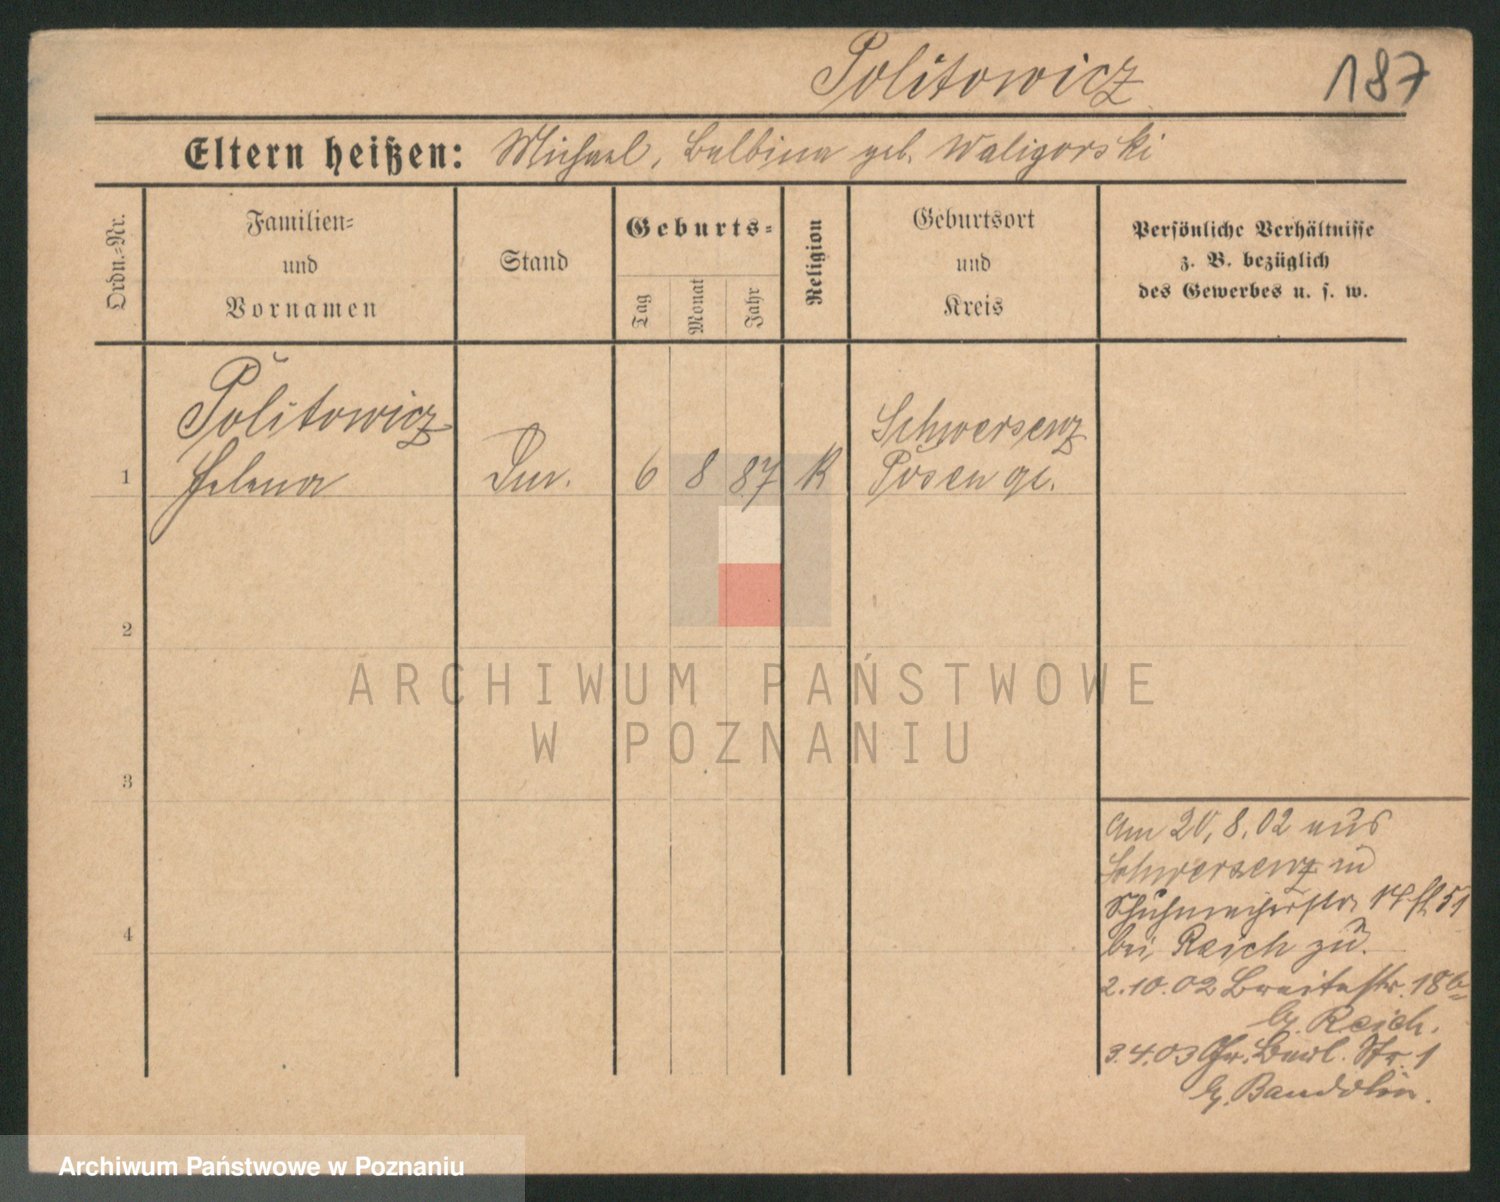 Politowicz 187
Eltern heißen: Michael, Balbina geb. Waligorski
Ordn.-Nr.
Familien-
und
Vornamen
Stand
Geburts-
Tag
Monat
Jahr
Religion
Geburtsort
und
Kreis
Persönliche Verhältnisse
z. B. bezüglich
des Gewerbes u. s. w.
Politowicz
Schwersenz
1 Helena 6 8 87 K Posen
2
3
4
ARCHIWUM PAŃSTWOWE
W POZNANIU
Am 20.8.02 aus
Schwersenz in
14
bei Reich zu.
2.10.02 Breitestr. 18
b. Reich.
3.4.03 Gr. Berl. Str. 1
b.
Archiwum Państwowe w Poznaniu